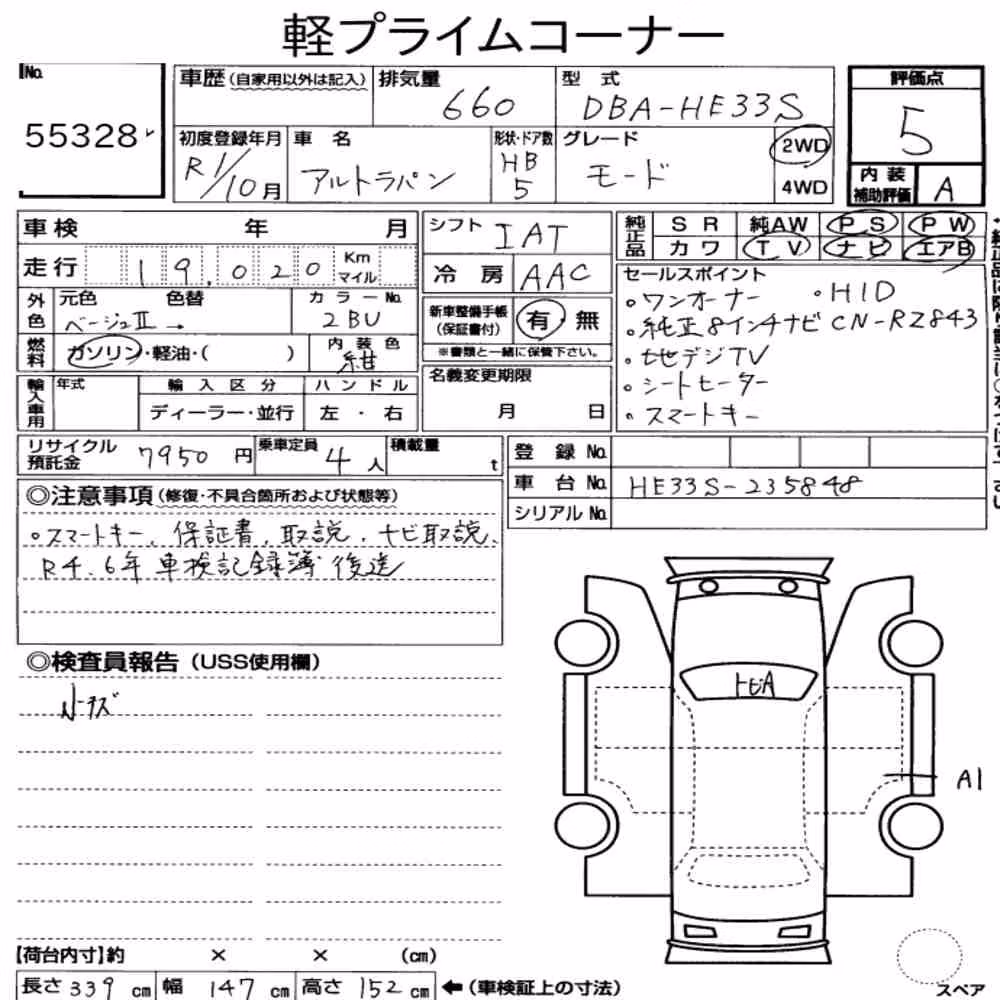 軽プライムコーナー
No.
55328
車歴(自家用以外は記入)
排気量
660
型式
DBA-HE33S
評価点
5
初度登録年月
R1/10月
車名
アルトラパン
形状・ドア数
HB
5
グレード
モード
2WD
4WD
内装
補助評価
A
車検 年 月
走行 19,020 Km
マイル
外色
元色 色替
ベージュII →
カラーNo.
2BU
燃料
ガソリン・軽油・( )
内装色
紺
輸入車用
年式
輸入区分
ディーラー・並行
ハンドル
左・右
シフト IAT
冷房 AAC
新車整備手帳
(保証書付)
有・無
※書類と一緒に保管下さい。
名義変更期限
月 日
純正品
SR 純AW PS PW
カワ TV ナビ エアB
セールスポイント
○ワンオーナー ○HID
○純正8インチナビ CN-RZ843
○地デジTV
○シートヒーター
○スマートキー
リサイクル
預託金 7950円
乗車定員 4人
積載量 t
登録No.
車台No. HE33S-235848
シリアルNo.
◎注意事項(修復・不具合箇所および状態等)
○スマートキー、保証書、取説、ナビ取説、
R4、6年 車検記録簿 後送
◎検査員報告(USS使用欄)
トビA
A1
【荷台内寸】約 × × (cm)
長さ 339 cm 幅 147 cm 高さ 152 cm ←(車検証上の寸法)
スペア